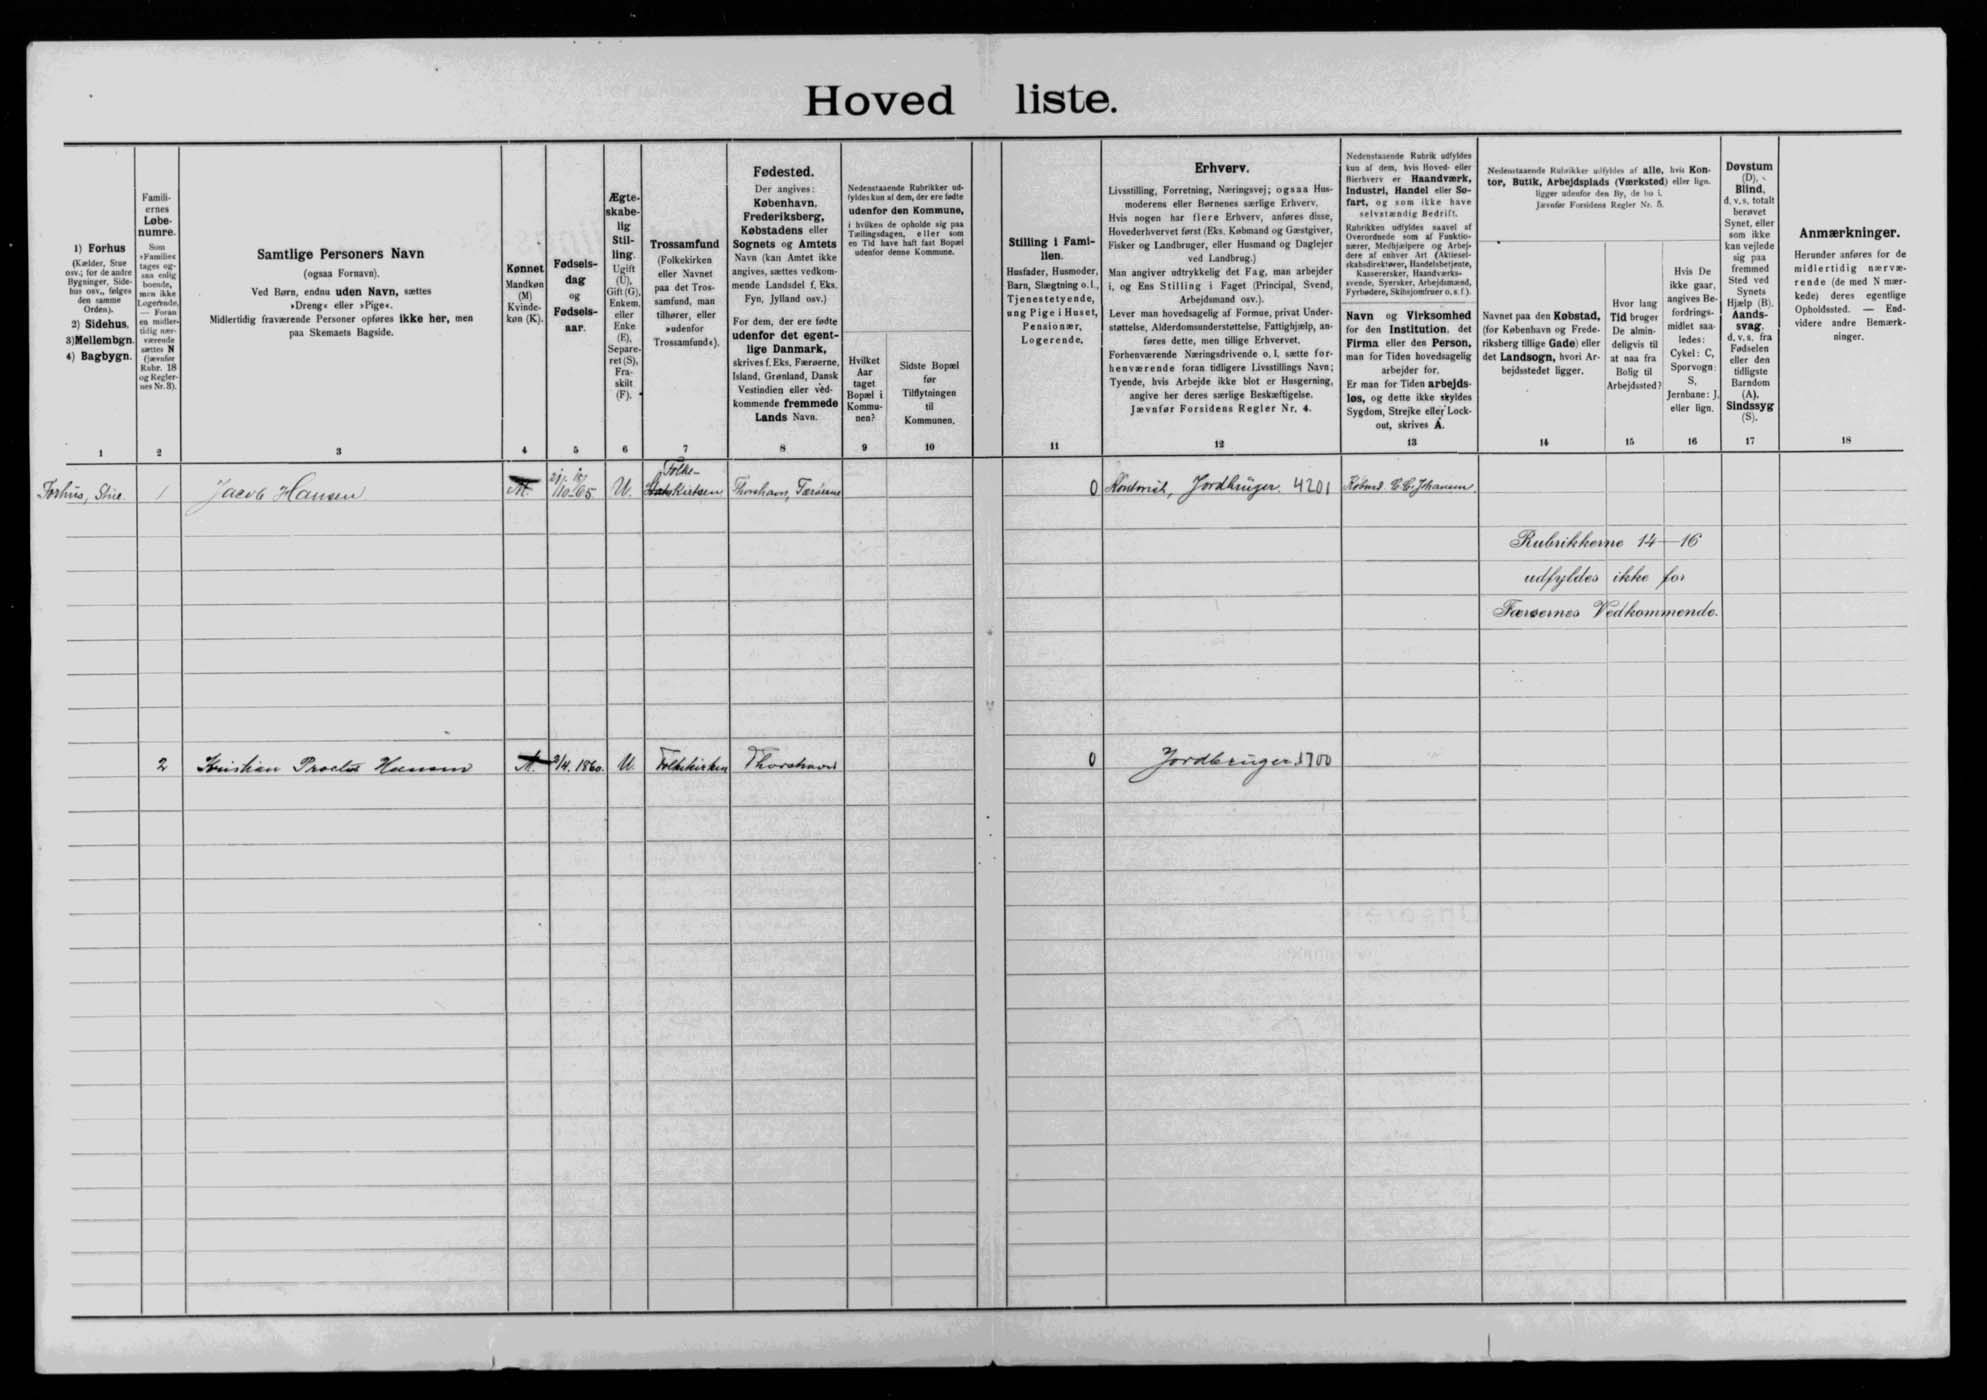 Hoved liste.
1) Forhus
(Kælder, Stue
osv.; for de andre
Bygninger, Side-
hus osv., følges
den samme
Orden).
2) Sidehus,
3) Mellembgn.
4) Bagbygn.
1
Famili-
ernes
Løbe-
numre.
Som
»Familie«
tages og-
saa enlig
boende,
men ikke
Logerende.
— Foran
en midler-
tidig nær-
værende
sættes N
(jævnfør
Rubr. 18
og Regler-
nes Nr. 3).
2
Samtlige Personers Navn
(ogsaa Fornavn).
Ved Børn, endnu uden Navn, sættes
»Dreng« eller »Pige«.
Midlertidig fraværende Personer opføres ikke her, men
paa Skemaets Bagside.
3
Kønnet
Mandkøn
(M)
Kvinde-
køn (K).
4
Fødsels-
dag
og
Fødsels-
aar.
5
Ægte-
skabe-
lig
Stil-
ling.
Ugift
(U),
Gift (G),
Enkem.
eller
Enke
(E),
Separe-
ret (S),
Fra-
skilt
(F).
6
Trossamfund
(Folkekirken
eller Navnet
paa det Tros-
samfund, man
tilhører, eller
»udenfor
Trossamfund«).
7
Fødested.
Der angives:
København,
Frederiksberg,
Købstadens eller
Sognets og Amtets
Navn (kan Amtet ikke
angives, sættes vedkom-
mende Landsdel f. Eks.
Fyn, Jylland osv.)
For dem, der ere fødte
udenfor det egent-
lige Danmark,
skrives f. Eks. Færøerne,
Island, Grønland, Dansk
Vestindien eller ved-
kommende fremmede
Lands Navn.
8
Nedenstaaende Rubrikker ud-
fyldes kun af dem, der ere fødte
udenfor den Kommune,
i hvilken de opholde sig paa
Tællingsdagen, eller som
en Tid have haft fast Bopæl
udenfor denne Kommune.
Hvilket
Aar
taget
Bopæl i
Kommu-
nen?
9
Sidste Bopæl
før
Tilflytningen
til
Kommunen.
10
Stilling i Fami-
lien.
Husfader, Husmoder,
Barn, Slægtning o. l.,
Tjenestetyende,
ung Pige i Huset,
Pensionær,
Logerende.
11
Erhverv.
Livsstilling, Forretning, Næringsvej; ogsaa Hus-
moderens eller Børnenes særlige Erhverv.
Hvis nogen har flere Erhverv, anføres disse,
Hovederhvervet først (Eks. Købmand og Gæstgiver,
Fisker og Landbruger, eller Husmand og Daglejer
ved Landbrug.)
Man angiver udtrykkelig det Fag, man arbejder
i, og Ens Stilling i Faget (Principal, Svend,
Arbejdsmand osv.).
Lever man hovedsagelig af Formue, privat Under-
støttelse, Alderdomsunderstøttelse, Fattighjælp, an-
føres dette, men tillige Erhvervet.
Forhenværende Næringsdrivende o. l. sætte for-
henværende foran tidligere Livsstillings Navn;
Tyende, hvis Arbejde ikke blot er Husgerning,
angive her deres særlige Beskæftigelse.
Jævnfør Forsidens Regler Nr. 4.
12
Nedenstaaende Rubrik udfyldes
kun af dem, hvis Hoved- eller
Bierhverv er Haandværk,
Industri, Handel eller Sø-
fart, og som ikke have
selvstændig Bedrift.
Rubrikken udfyldes saavel af
Overordnede som af Funktio-
nærer, Medhjælpere og Arbej-
dere af enhver Art (Aktiesel-
skabsdirektører, Handelsbetjente,
Kasserersker, Haandværks-
svende, Syersker, Arbejdsmænd,
Fyrbødere, Skibsjomfruer o. s. f.).
Navn og Virksomhed
for den Institution, det
Firma eller den Person,
man for Tiden hovedsagelig
arbejder for.
Er man for Tiden arbejds-
løs, og dette ikke skyldes
Sygdom, Strejke eller Lock-
out, skrives A.
13
Nedenstaaende Rubrikker udfyldes af alle, hvis Kon-
tor, Butik, Arbejdsplads (Værksted) eller lign.
ligger udenfor den By, de bo i.
Jævnfør Forsidens Regler Nr. 5.
Navnet paa den Købstad,
(for København og Frede-
riksberg tillige Gade) eller
det Landsogn, hvori Ar-
bejdsstedet ligger.
14
Hvor lang
Tid bruger
De almin-
deligvis til
at naa fra
Bolig til
Arbejdssted?
15
Hvis De
ikke gaar,
angives Be-
fordrings-
midlet saa-
ledes:
Cykel: C,
Sporvogn:
S,
Jernbane: J,
eller lign.
16
Døvstum
(D),
Blind,
d. v. s. totalt
berøvet
Synet, eller
som ikke
kan vejlede
sig paa
fremmed
Sted ved
Synets
Hjælp (B).
Aands-
svag,
d. v. s. fra
Fødselen
eller den
tidligste
Barndom
(A),
Sindssyg
(S).
17
Anmærkninger.
Herunder anføres for de
midlertidig nærvæ-
rende (de med N mær-
kede) deres egentlige
Opholdssted. — End-
videre andre Bemærk-
ninger.
18
Forhus, Stue. 1 Jacob Hansen M. U. Folke-kirken Thorshavn, Færøerne 0 Jordbruger. 4201 Købmd. Johansen.
Rubrikkerne 14-16
udfyldes ikke for
Færøernes Vedkommende.
2 Kristian Hansen M. 2/4. 1860. U. Folkekirken Thorshavn 0 Jordbruger 3700